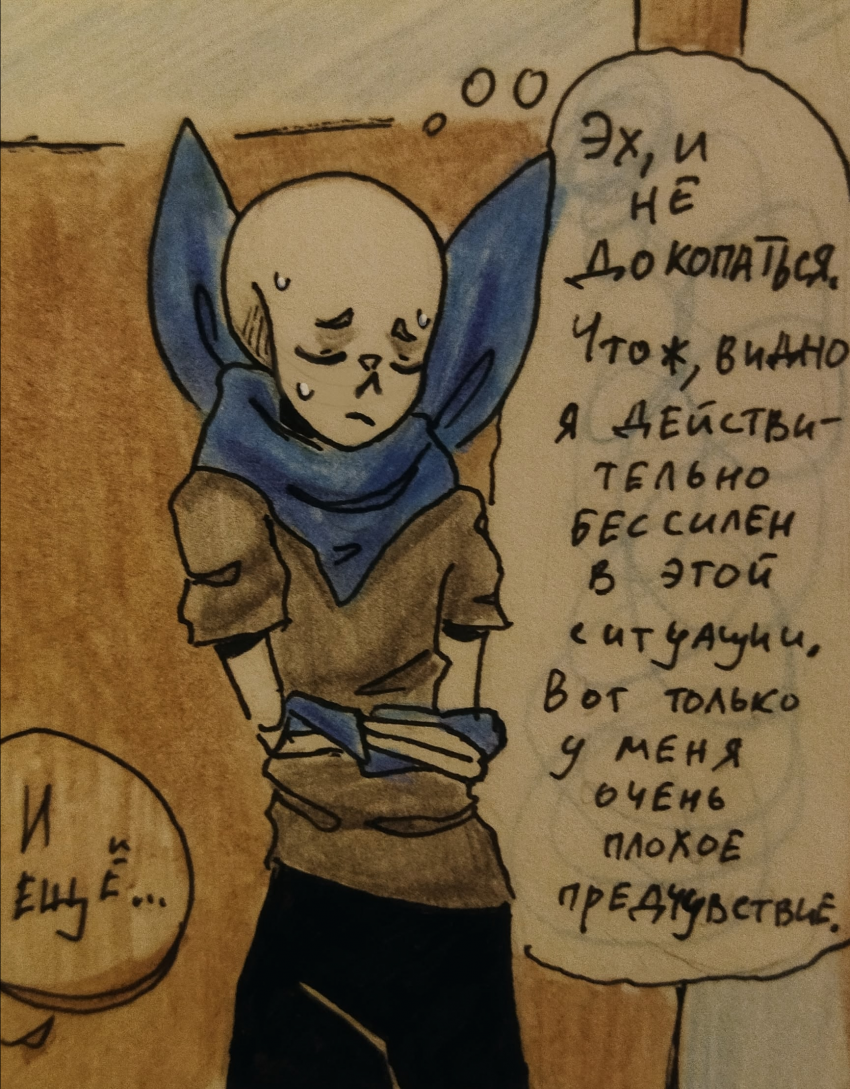 Эх, и
не
докопаться.
Что ж, видно
я действи-
тельно
бессилен
в этой
ситуации.
Вот только
у меня
очень
плохое
предчувствие.
И
ещё...